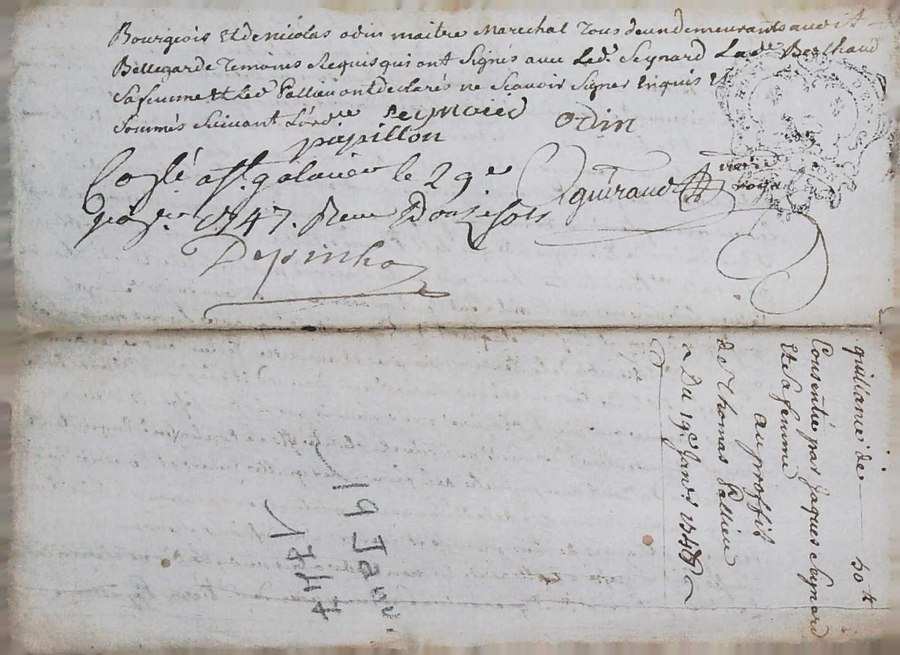 Bourgeois Et de nicolas odin maitre Marechal Tous deux demeurants aud St
Bellegarde Temoins Requis qui ont Signés avec Led. Seynard Lade Berthaud
Sa femme Et Led Pallieu ont declarés ne Scavoir Signer Enquis Et
Sommés Suivant L'ordce
papillon odin
guiraud
le 29e
1747. Reçu Douze sols
Depinha
quittance de 50 tt
Consentie par Jaques Seynard
Et Sa femme
au proffit
de Thomas Pallieu
Du 19e Janv. 1747
19 Janv.
1747